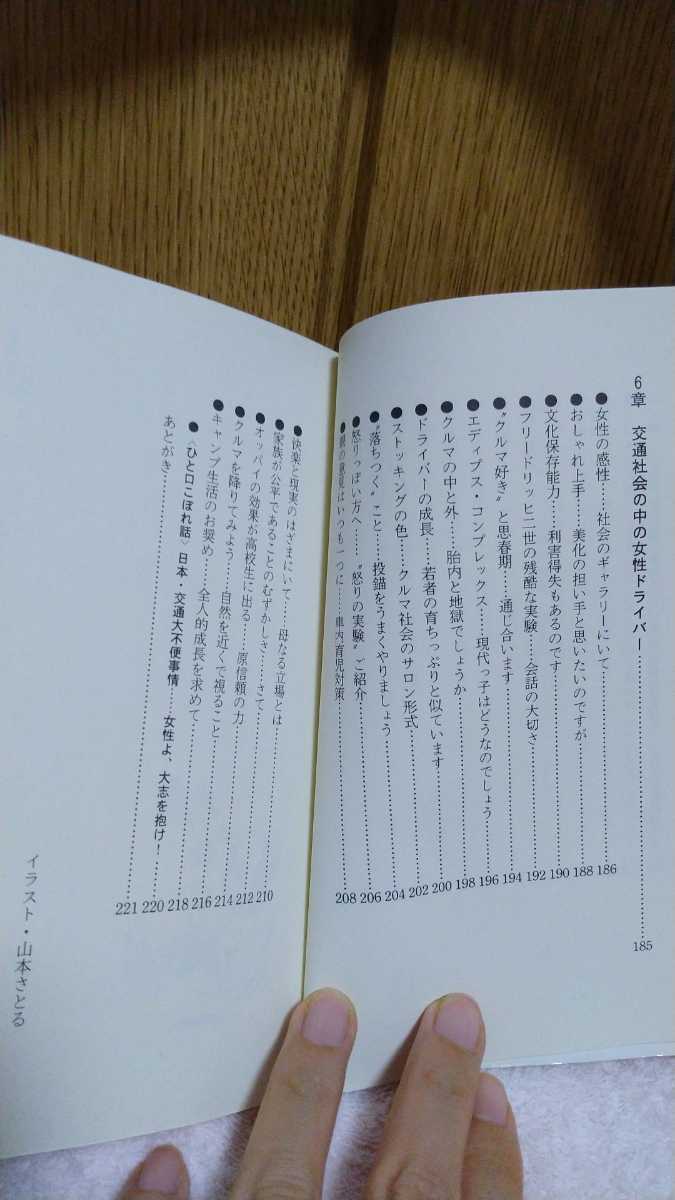 6章　交通社会の中の女性ドライバー……185
●女性の感性……社会のギャラリーにいて……186
●おしゃれ上手……美化の担い手と思いたいのですが……188
●文化保存能力……利害得失もあるのです……190
●フリードリッヒ二世の残酷な実験……会話の大切さ……192
●〝クルマ好き〟と思春期……通じ合います……194
●エディプス・コンプレックス……現代っ子はどうなのでしょう……196
●クルマの中と外……胎内と地獄でしょうか……198
●ドライバーの成長……若者の育ちっぷりと似ています……200
●ストッキングの色……クルマ社会のサロン形式……202
●〝落ちつく〟こと……投錨をうまくやりましょう……204
●怒りっぽい方へ……〝怒りの実験〟ご紹介……206
●親の意見はいつも一つに……車内育児対策……208
●快楽と現実のはざまにいて……母なる立場とは……210
●家族が公平であることのむずかしさ……さて……212
●オッパイの効果が高校生に出る……原信頼の力……214
●クルマを降りてみよう……自然を近くで視ること……216
●キャンプ生活のお奨め……全人的成長を求めて……218
●〈ひと口こぼれ話〉日本・交通大不便事情……女性よ、大志を抱け！……220
あとがき……221
イラスト・山本さとる